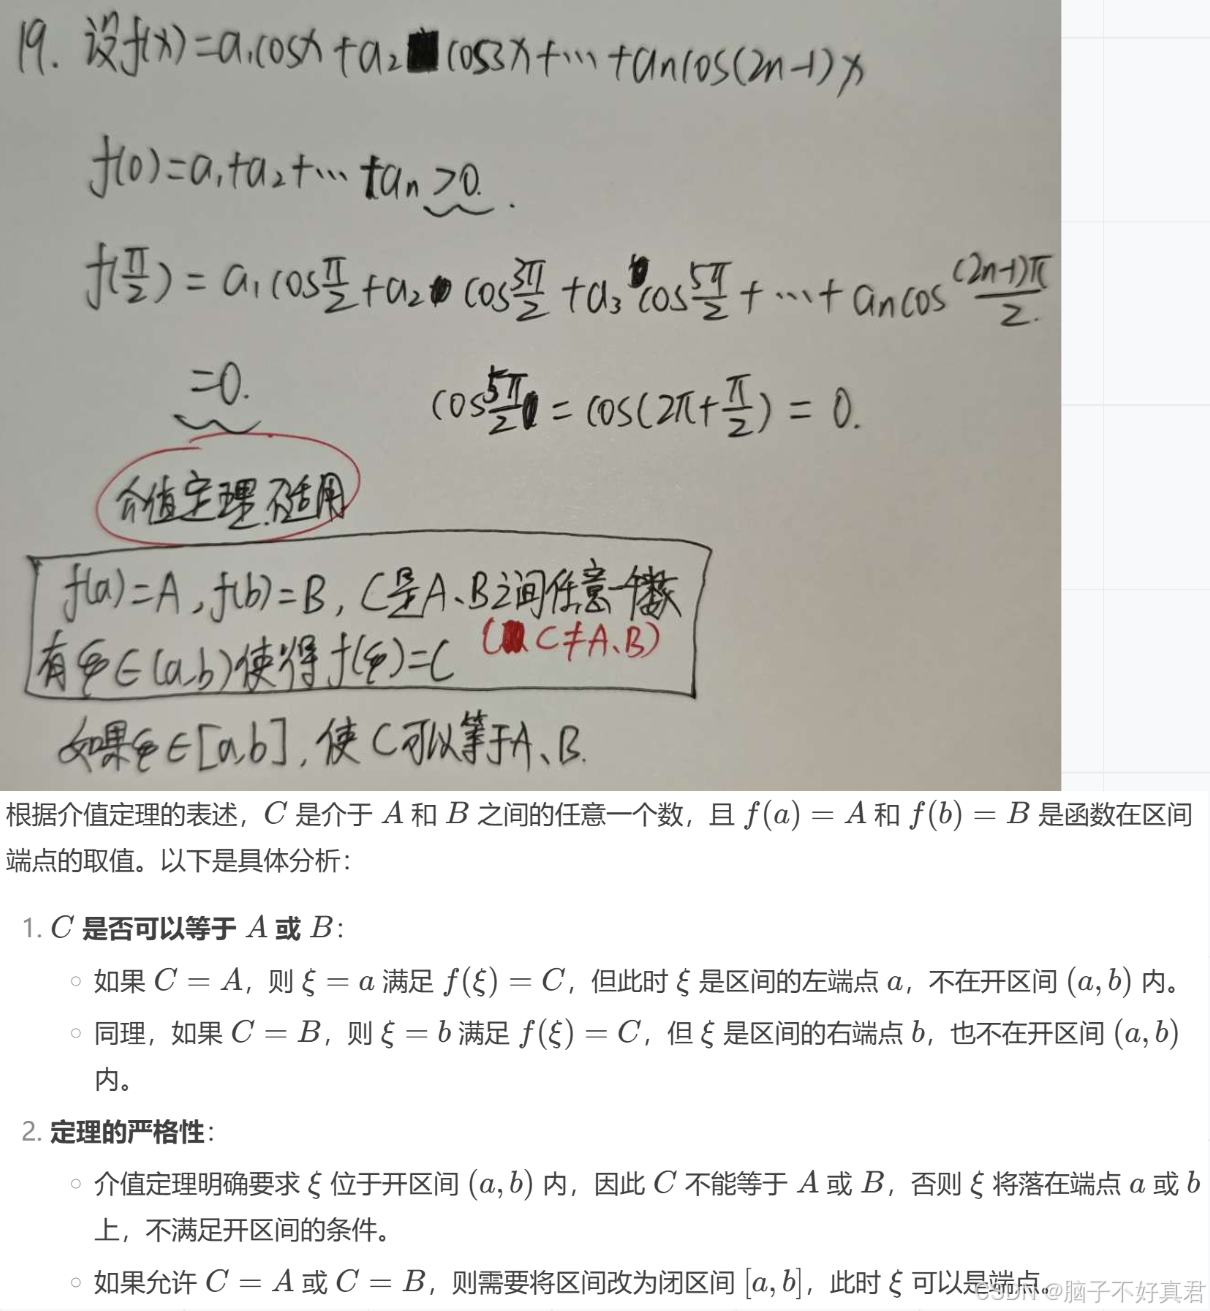 19. 设f(x)=a₁cosx+a₂cos3x+⋯+aₙcos(2n-1)x
f(0)=a₁+a₂+⋯+aₙ>0.
f(π/2)=a₁cosπ/2+a₂cos3π/2+a₃cos5π/2+⋯+aₙcos(2n-1)π/2.
=0. cos5π/2=cos(2π+π/2)=0.
介值定理不适用
f(a)=A,f(b)=B,C是A、B之间任意一个数
有ξ∈(a,b)使得f(ξ)=C (C≠A、B)
如果ξ∈[a,b],使C可以等于A、B.
根据介值定理的表述，C 是介于 A 和 B 之间的任意一个数，且 f(a) = A 和 f(b) = B 是函数在区间
端点的取值。以下是具体分析：
1. C 是否可以等于 A 或 B：
○ 如果 C = A，则 ξ = a 满足 f(ξ) = C，但此时 ξ 是区间的左端点 a，不在开区间 (a, b) 内。
○ 同理，如果 C = B，则 ξ = b 满足 f(ξ) = C，但 ξ 是区间的右端点 b，也不在开区间 (a, b)
内。
2. 定理的严格性：
○ 介值定理明确要求 ξ 位于开区间 (a, b) 内，因此 C 不能等于 A 或 B，否则 ξ 将落在端点 a 或 b
上，不满足开区间的条件。
○ 如果允许 C = A 或 C = B，则需要将区间改为闭区间 [a, b]，此时 ξ 可以是端点。
CSDN @脑子不好真君